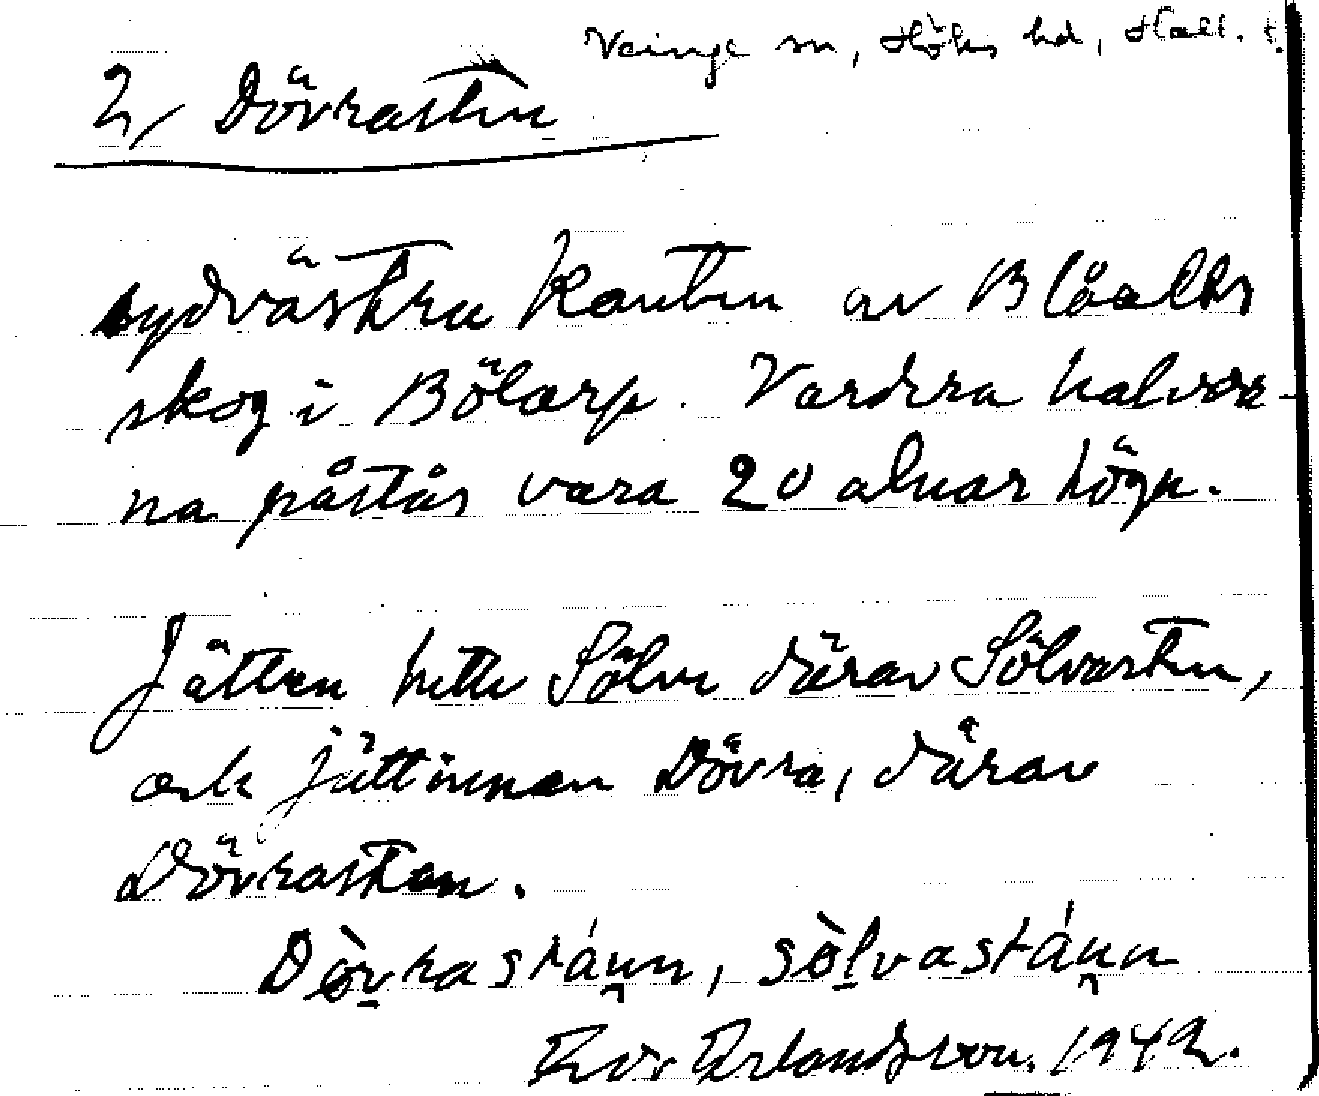 Veinge sn, Höks hd, Hall. l.
2, Dövrasten
sydvästra kanten av Blåalts
skog i Bölarp. Vardera halvor-
na påstås vara 20 alnar höga.
Jätten hette Sölve därav Sölvasten,
och jättinnan Dövra, därav
Dövrastan.
Dòvrastáun, sòlvastáun
Erlandsson. 1942.